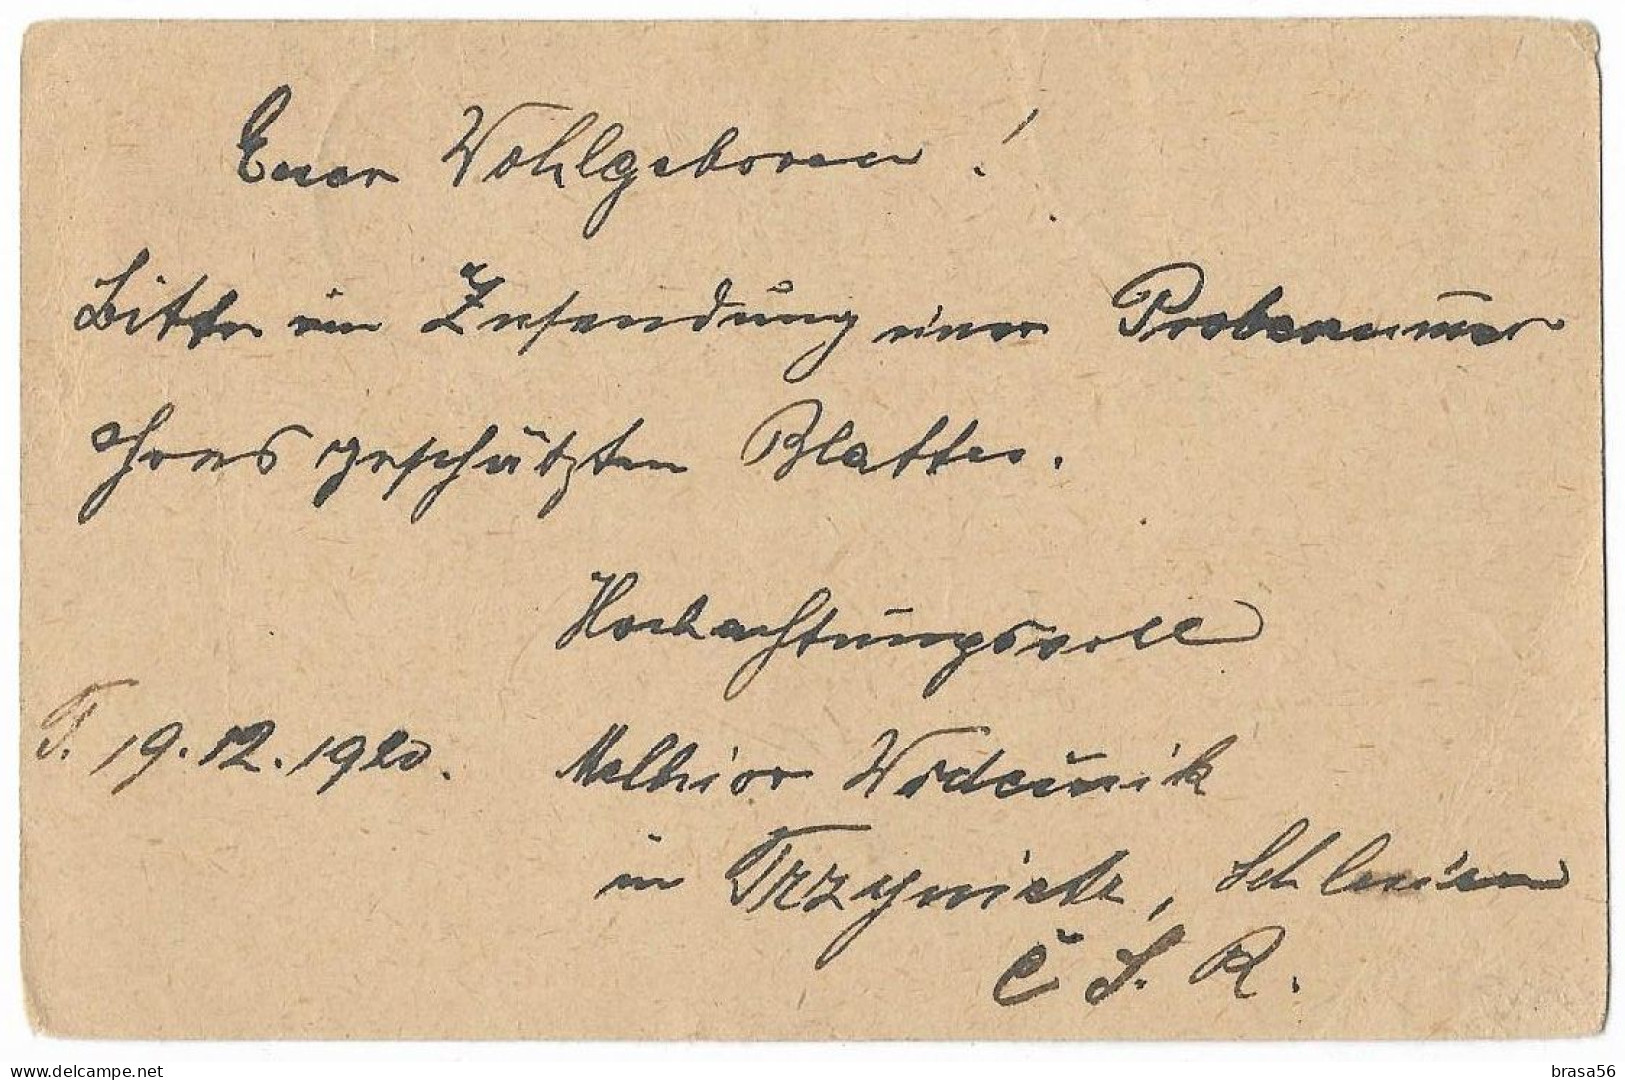 Euer Wohlgeboren!
Bitte um Zusendung einer Probenum̅er
Ihres geschätzten Blattes.
Hochachtungsvoll
T. 19.12.1920. Melhior
in Trzynietz, Schlesien
Č S. R.
brasa56